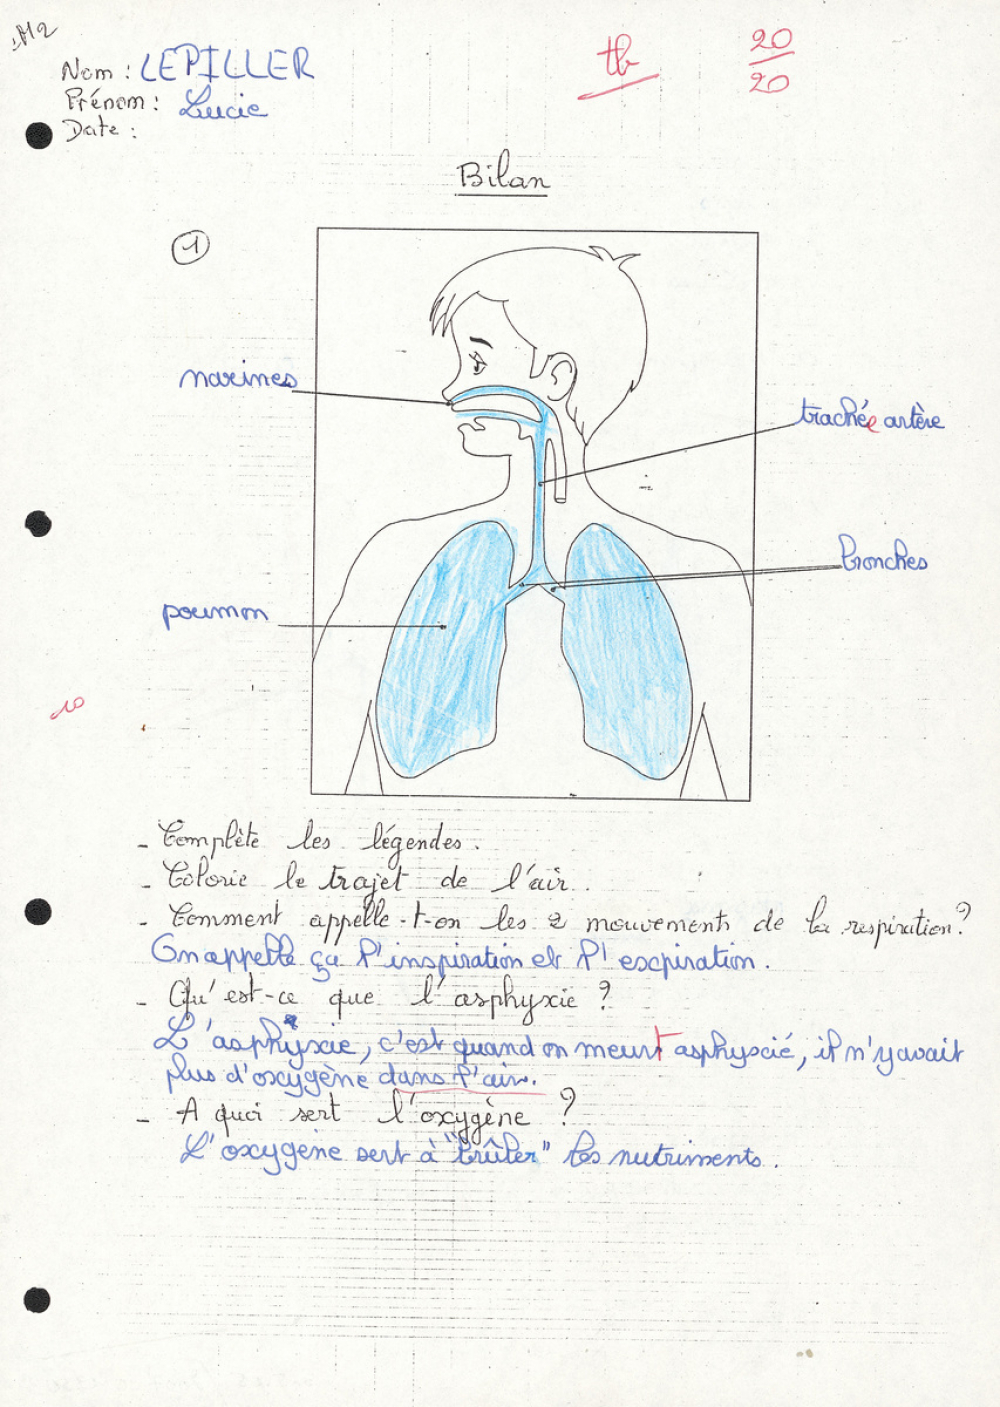 CM2
Nom : LEPILLER
tb
20
20
Prénom : Lucie
Date :
Bilan
1
narines
trachée artère
bronches
poumon
10
- Complète les légendes.
- Colorie le trajet de l'air.
- Comment appelle-t-on les 2 mouvements de la respiration ?
On appelle ça l'inspiration et l'expiration.
- Qu'est-ce que l'asphyxie ?
L'asphyxie, c'est quand on meurt asphyxié, il n'y avait
plus d'oxygène dans l'air.
- A quoi sert l'oxygène ?
L'oxygène sert à "brûler" les nutriments.